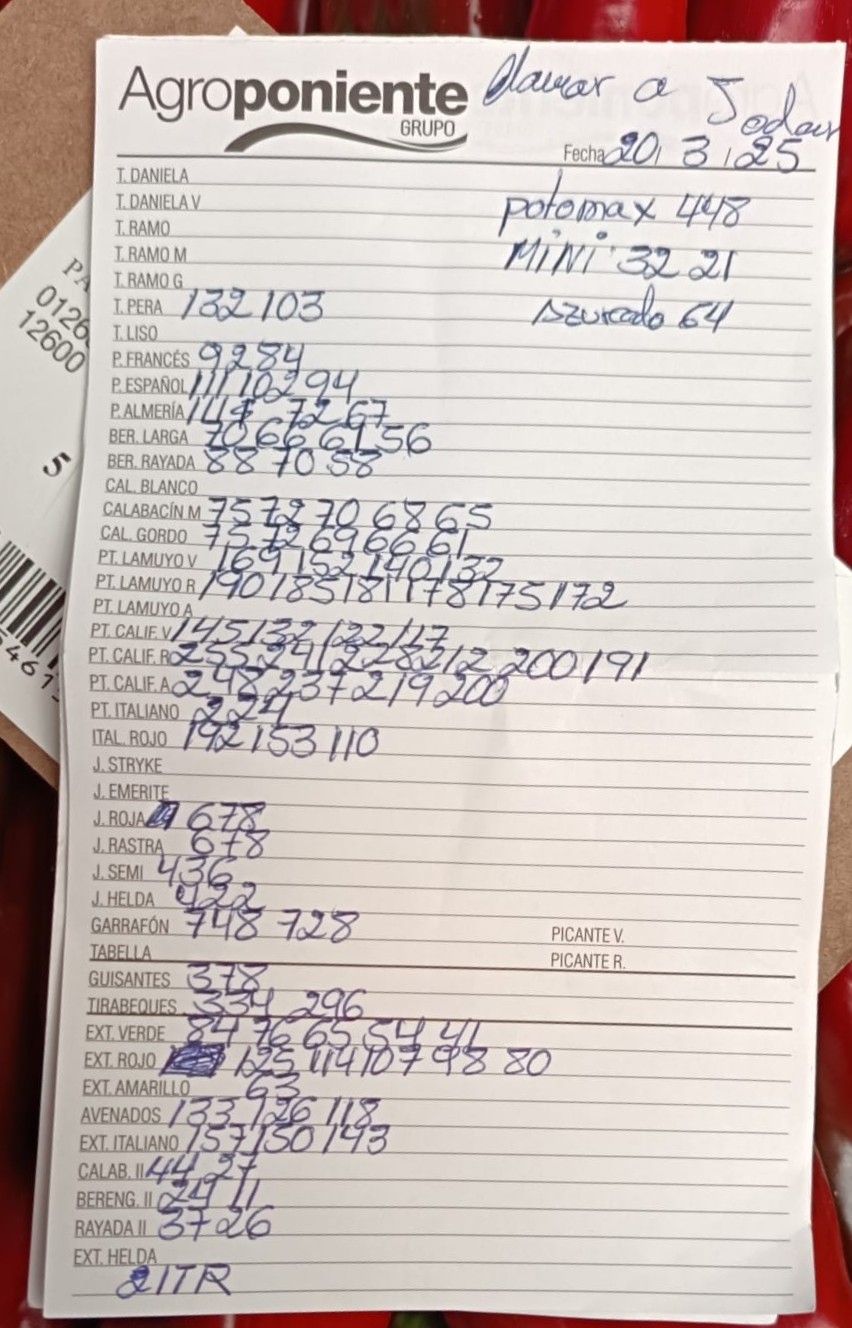 Agroponiente
GRUPO
llamar a Jodar
Fecha 20 / 3 / 25
T. DANIELA
T. DANIELA V
potomax 448
T. RAMO
T. RAMO M
MiNi 32 21
T. RAMO G
T. PERA 132 103
Azurcado 64
T. LISO
P. FRANCÉS 92 84
P. ESPAÑOL 111 102 94
P. ALMERÍA 147 72 67
BER. LARGA 70 66 61 56
BER. RAYADA 88 70 58
CAL. BLANCO
CALABACÍN M 75 72 70 68 65
CAL. GORDO 75 72 69 66 61
PT. LAMUYO V 169 152 140 132
PT. LAMUYO R 190 185 181 178 175 172
PT. LAMUYO A
PT. CALIF. V 145 132 122 117
PT. CALIF. R 255 241 228 212 200 191
PT. CALIF. A 248 237 219 200
PT. ITALIANO 224
ITAL. ROJO 192 153 110
J. STRYKE
J. EMERITE
J. ROJA 678
J. RASTRA 678
J. SEMI 436
J. HELDA 422
GARRAFÓN 748 728
PICANTE V.
TABELLA
PICANTE R.
GUISANTES 378
TIRABEQUES 334 296
EXT. VERDE 84 76 65 54 41
EXT. ROJO 125 114 107 98 80
EXT. AMARILLO 63
AVENADOS 133 126 118
EXT. ITALIANO 157 150 143
CALAB. II 44 27
BERENG. II 24 11
RAYADA II 37 26
EXT. HELDA
21TR
PA
0126
12600
5
5461